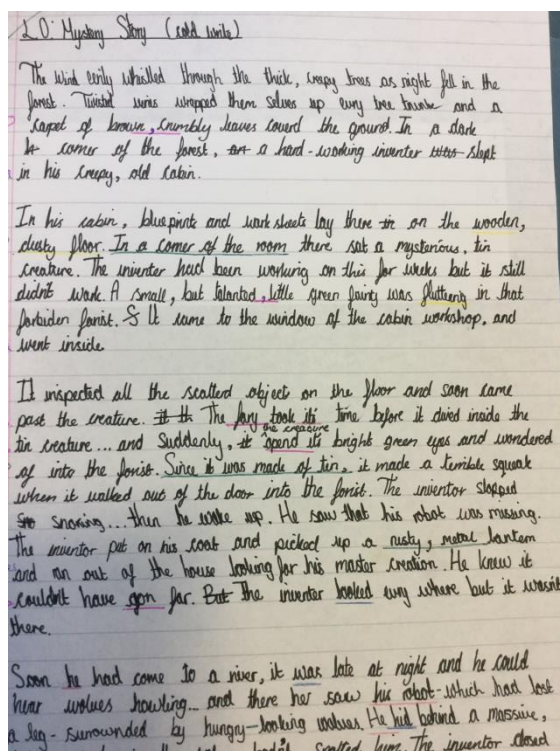 LO: Mystery Story (cold write)
The wind eerily whistled through the thick, creepy trees as night fell in the
forest. Twisted vines wrapped them selves up evry tree trunk and a
carpet of brown, crumbly leaves coverd the ground. In a dark
corner of the forest, a hard-working inventer slept
in his creepy, old cabin.
In his cabin, blueprints and work sheets lay there on the wooden,
dusty floor. In a corner of the room there sat a mysterious, tin
creature. The inventer had been working on this for weeks but it still
didn't work. A small, but talanted, little green fairy was fluttering in that
forbiden forist. It came to the window of the cabin workshop, and
went inside
It inspected all the scatterd object on the floor and soon came
past the creature. The fary took its time before it dived inside the
tin creature... and Suddenly, the creature opend its bright green eyes and wondered
of into the forist. Since it was made of tin, it made a terrible squeak
when it walked out of the door into the forist. The inventor stopped
snoring... then he woke up. He saw that his robot was missing.
The inventor put on his coat and picked up a rusty, metal lantern
and ran out of the house looking for his master creation. He knew it
couldn't have gon far. But The inventer looked evry where but it wasn't
there.
Soon he had come to a river, it was late at night and he could
hear wolves howling... and there her saw his robot-which had lost
a leg- surrounded by hungry-looking wolves. He hid behind a massive,
The inventor closed